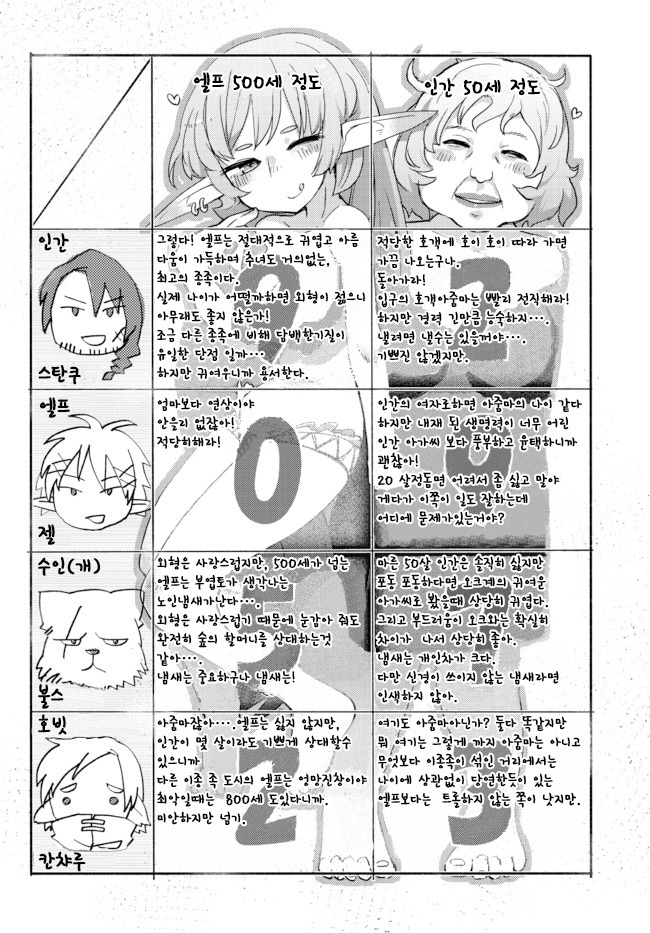 엘프 500세 정도
인간 50세 정도
인간
스탄쿠
그렇다! 엘프는 절대적으로 귀엽고 아름
다움이 가득하며 추녀도 거의없는,
최고의 종족이다.
실제 나이가 어떨까하면 외형이 젊으니
아무래도 좋지 않은가!
조금 다른 종족에 비해 담백한기질이
유일한 단점 일까…
하지만 귀여우니까 용서한다.
2
적당한 호객에 호이 호이 따라 가면
가끔 나오는구나.
돌아가라!
입구의 호객아줌마는 빨리 전직해라!
하지만 경력 긴만큼 능숙하지….
낼려면 낼수는 있을꺼야….
기쁘진 않겠지만.
2
엘프
젤
엄마보다 연상이야
안을리 없잖아!
적당히해라!
0
인간의 여자로하면 아줌마의 나이 같다
하지만 내재 된 생명력이 너무 어린
인간 아가씨 보다 풍부하고 윤택하니까
괜찮아!
20 살전둥면 어려서 좀 싫고 말야
게다가 이쪽이 일도 잘하는데
어디에 문제가있는거야?
수인(개)
불스
외형은 사랑스럽지만, 500세가 넘는
엘프는 부엽토가 생각나는
노인냄새가난다….
외형은 사랑스럽기 때문에 눈감아 줘도
완전히 숲의 할머니를 상대하는것
같아….
냄새는 중요하구나 냄새는!
마른 50살 인간은 솔직히 싫지만
포동 포동하다면 오크계의 귀여운
아가씨로 봤을때 상당히 귀엽다.
그리고 부드러움이 오크와는 확실히
차이가 나서 상당히 좋아.
냄새는 개인차가 크다.
다만 신경이 쓰이지 않는 냄새라면
인색하지 않아.
호빗
칸챠루
아줌마잖아….엘프는 싫지 않지만,
인간이 몇 살이라도 기쁘게 상대할수
있으니까
다른 이종 족 도시의 엘프는 엉망진창이야
최악일때는 800세 도있다니까.
미안하지만 넘기.
2
여기도 아줌마아닌가? 둘다 똑같지만
뭐 여기는 그렇게 까지 아줌마는 아니고
무엇보다 이종족이 섞인 거리에서는
나이에 상관없이 당연한듯이 있는
엘프보다는 트롤하지 않는 쪽이 낫지만.
5